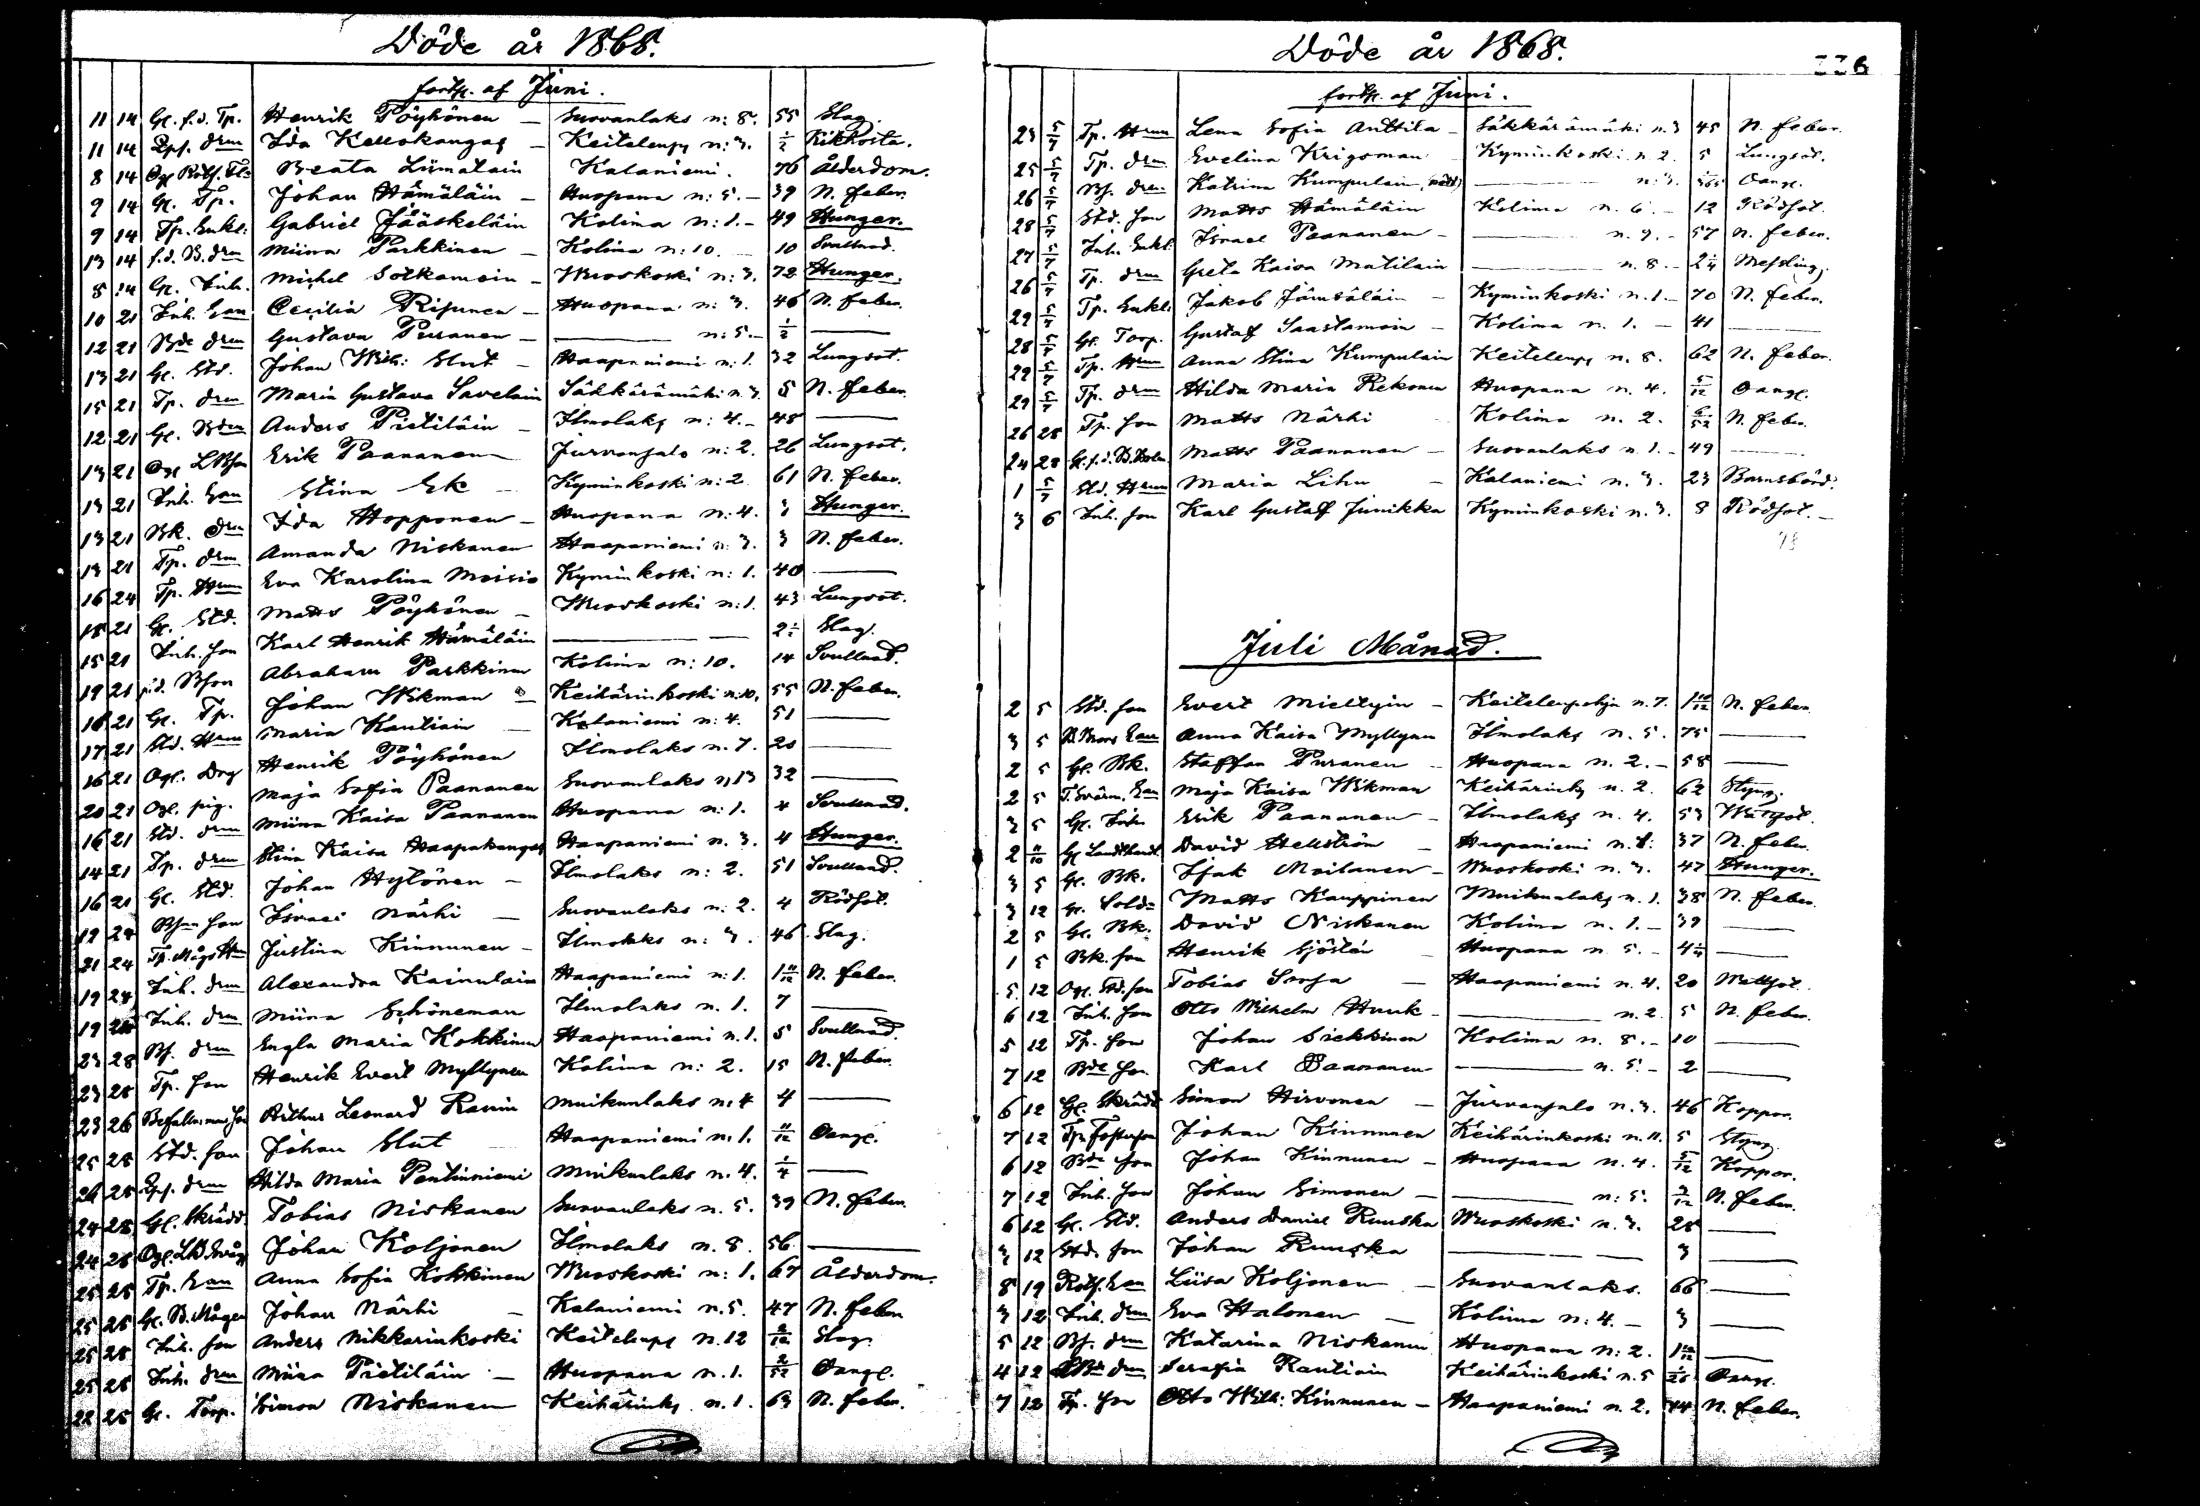 Döde år 1868.
forts. af Juni.
11 14 Gl. f.d. Tp. Henrik Pöyhönen — Suovanlaks n: 8. 55 Slag.
11 14 drn Ida Kellokangas — Keitelemp n: 3. 1/2 Kikhosta.
8 14 Beata Liimatain Kalaniemi. 76 Ålderdom.
9 14 Gl. Tp. Johan Hämäläin — Huopana n: 5. — 39 N. feber.
9 14 Tp. Enkl. Gabriel Jääskeläin Kolima n: 1. — 49 Hunger.
13 14 f.d. B. drn Miina Parkkinen — Kolima n: 10. — 10 Svullnad.
8 14 Gl. Inh. Michel Sotkamoin — Wuoskoski n: 3. 72 Hunger.
10 21 Inh. Ean Cecilia Risunen — Huopana n: 3. 46 N. feber.
12 21 Bde drn Gustava Puranen — —— n: 5. — 1/2 ——
13 21 Gl. Std. Johan Wilh: Slut — Haapaniemi n: 1. 32 Lungsot.
15 21 Tp. drn Maria Gustava Savelain Säkkärämäki n. 3. 5 N. feber.
12 21 Gl. Anders Pietiläin — Ilmolaks n: 4. — 45 ——
13 21 Erik Paananen Jurvansalo n: 2. 26 Lungsot.
13 21 Inh. Ean Stina Ek — Kyminkoski n: 2 61 N. feber.
13 21 Bk. drn Ida Hopponen — Huopana n: 4. Hunger.
13 21 Tp. drn Amanda Niskanen Haapaniemi n: 3. 3 N. feber.
16 24 Tp. Hrun Eva Karolina Moisio Kyminkoski n: 1. 40 ——
18 21 Gl. Std. Matts Pöyhönen — Wuoskoski n: 1. 43 Lungsot.
15 21 Inh. son Karl Henrik Hämäläin —— 2 Slag.
19 21 Abraham Parkkinen Kolima n: 10. 14 Svullnad.
18 21 Gl. Tp. Johan Wikman — Keihärinkoski n: 10. 55 N. feber.
17 21 Std. Hrun Maria Rautiain — Kalaniemi n: 4. 51 ——
16 21 Ogl. Drg Henrik Pöyhönen Ilmolaks n. 7. 20 ——
20 21 Ogl. pig. Maja Sofia Paananen Suovanlaks n. 13 32 ——
16 21 Std. drn Miina Kaisa Paananen Huopana n: 1. 4 Svullnad.
14 21 Tp. drn Stina Kaisa Haapakangas Haapaniemi n. 3. 4 Hunger.
16 21 Gl. Std. Johan Hytönen — Ilmolaks n: 2. 51 Svullnad.
19 24 son Israel Närhi — Suovanlaks n: 2. 4 Rödsot.
21 24 Tp. Mågs Hrun Justina Kinnunen — Ilmolaks n: 3. 46 Slag.
19 24 Inh. drn Alexandra Kainulain Haapaniemi n: 1. 1 11/12 N. feber.
19 Inh. drn Miina Schöneman Ilmolaks n. 1. 7 ——
23 28 drn Engla Maria Kokkinen Haapaniemi n. 1. 5 Svullnad.
23 28 Tp. son Henrik Evert Myllynen Kolima n: 2. 15 N. feber.
23 26 Arthur Leonard Muikunlaks n: 4 4 ——
25 28 Std. son Johan Slut Haapaniemi n. 1. 11/12 Oangl.
26 28 drn Hilda Maria Penttinniemi Muikunlaks n. 4. 1/4 ——
24 28 Gl. Skrädd. Tobias Niskanen Suovanlaks n. 5. 39 N. feber.
24 28 Johan Koljonen Ilmolaks n. 8. 56 ——
25 28 Tp. Ean Anna Sofia Kokkinen Wuoskoski n: 1. 67 Ålderdom.
25 28 Gl. B. Mågen Johan Närhi — Kalaniemi n. 5. 47 N. feber
25 28 Inh. son Anders Nikkarinkoski Keitelemp n. 12 Slag.
25 28 Inh. drn Miina Pietiläin — Huopana n. 1. Oangl.
22 28 Gl. Torp. Simon Niskanen Keihärink n. 1. 63 N. feber.
Döde år 1868.
forts. af Juni.
23 5/7 Tp. Hrun Lena Sofia Anttila — Säkkärämäki n. 3 45 N. feber.
25 5/7 Tp. drn Evelina Krigsman — Kyminkoski n. 2. 5 Lungsot.
26 5/7 drn Katrina Kumpulain —— n: 3. Oangl.
28 5/7 Std. son Matts Hämäläin Kolima n. 6. — 12 Rödsot.
27 5/7 Inh. Enkl. Israel Paananen — —— n. 9. — 57 N. feber.
26 5/7 Tp. drn Greta Kaisa Matilain —— n. 8. — 2 1/4 Messling.
29 5/7 Tp. Enkl. Jakob Jämsäläin — Kyminkoski n. 1. — 70 N. feber.
28 5/7 Gl. Torp. Gustaf Saastamoin — Kolima n. 1. — 41 ——
29 5/7 Tp. Hrun Anna Stina Kumpulain Keitelemp n. 8. 62 N. feber.
29 5/7 Tp. drn Hilda Maria Rekonen Huopana n. 4. 5/12 Oangl.
26 28 Tp. son Matts Närhi Kolima n. 2. 6/52 N. feber.
24 28 Matts Paananen — Suovanlaks n. 1. — 49 ——
1 5/7 Std. Hrun Maria Lihn — Kalaniemi n. 3. 23 Barnsbörd.
3 6 Inh. son Karl Gustaf Junikka Kyminkoski n. 3. 8 Rödsot. —
Juli Månad.
2 5 Std. son Evert Mieltyin — Keitelempohja n. 7. 1 10/12 N. feber
3 5 Ean Anna Kaisa Myllynen Ilmolaks n. 5. 75 ——
2 5 Gl. Bk. Staffan Puranen — Huopana n. 2. — 58 ——
2 5 Ean Maja Kaisa Wikman Keihärink n. 2. 62 Styng.
3 5 Gl. Inh. Erik Paananen — Ilmolaks n. 4. 53
2 11/10 David Hellström — Haapaniemi 37 N. feber.
3 5 Gl. Bk. Isak Moilanen — Wuoskoski n. 3. 47 Hunger.
3 12 Gl. Sold. Matts Kauppinen Muikunlaks n. 1. 38 N. feber.
2 5 Gl. Bk. David Niskanen Kolima n. 1. — 39 ——
1 5 Bk. son Henrik Sjöstén — Huopana n. 5. — 4 ——
5 12 Ogl. Std. son Tobias — Haapaniemi n. 4. 20
6 12 Inh. son Otto Wilhelm — —— n. 2. 5 N. feber.
5 12 Tp. son Johan Siekkinen Kolima n. 8. — 10 ——
7 12 Bde son Karl Paananen —— n. 5. — 2 ——
6 12 Gl. Skrädd Simon Hirvonen — Jurvansalo n. 3. 46 Koppor.
7 12 Tp. Fosterson Johan Kinnunen Keihärinkoski n. 11. 5 Styng
6 12 Bde son Johan Kinnunen — Huopana n. 4. 5/12 Koppor.
7 12 Inh. son Johan Simonen — —— n: 5. N. feber.
6 12 Gl. Std. Anders Daniel Ruuska Wuoskoski n. 3. 28 ——
3 12 Std. son Johan Ruuska —— 3 ——
8 19 Rotf. Ean Liisa Koljonen — Suovanlaks. 66 ——
3 12 Inh. drn Eva Halonen — Kolima n: 4. — 3 ——
5 12 drn Katarina Niskanen Huopana n: 2. 1 10/12 ——
4 12 drn Serafia Rautiain Keihärinkoski n. 5 Oangl.
7 12 Tp. son Otto Wilh: Kinnunen — Haapaniemi n. 2. 44 N. feber.